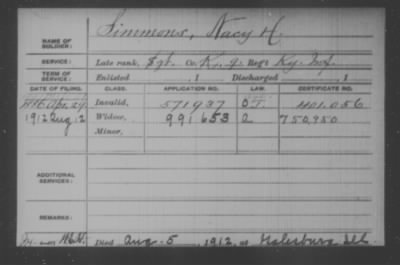 Simmons, Nacy H.
NAME OF SOLDIER:
SERVICE: Late rank, Sgt. Co. K, 9 Reg't Ky. Inf.
TERM OF SERVICE: Enlisted , 1 Discharged , 1
DATE OF FILING. CLASS. APPLICATION NO. LAW. CERTIFICATE NO.
Apr. 29 Invalid, 571937 O.J. 401.056
1912 Aug. 12 Widow, 991653 2 750,950
Minor,
ADDITIONAL SERVICES:
REMARKS:
Died Aug. 5, 1912, at Galesburg Ill.